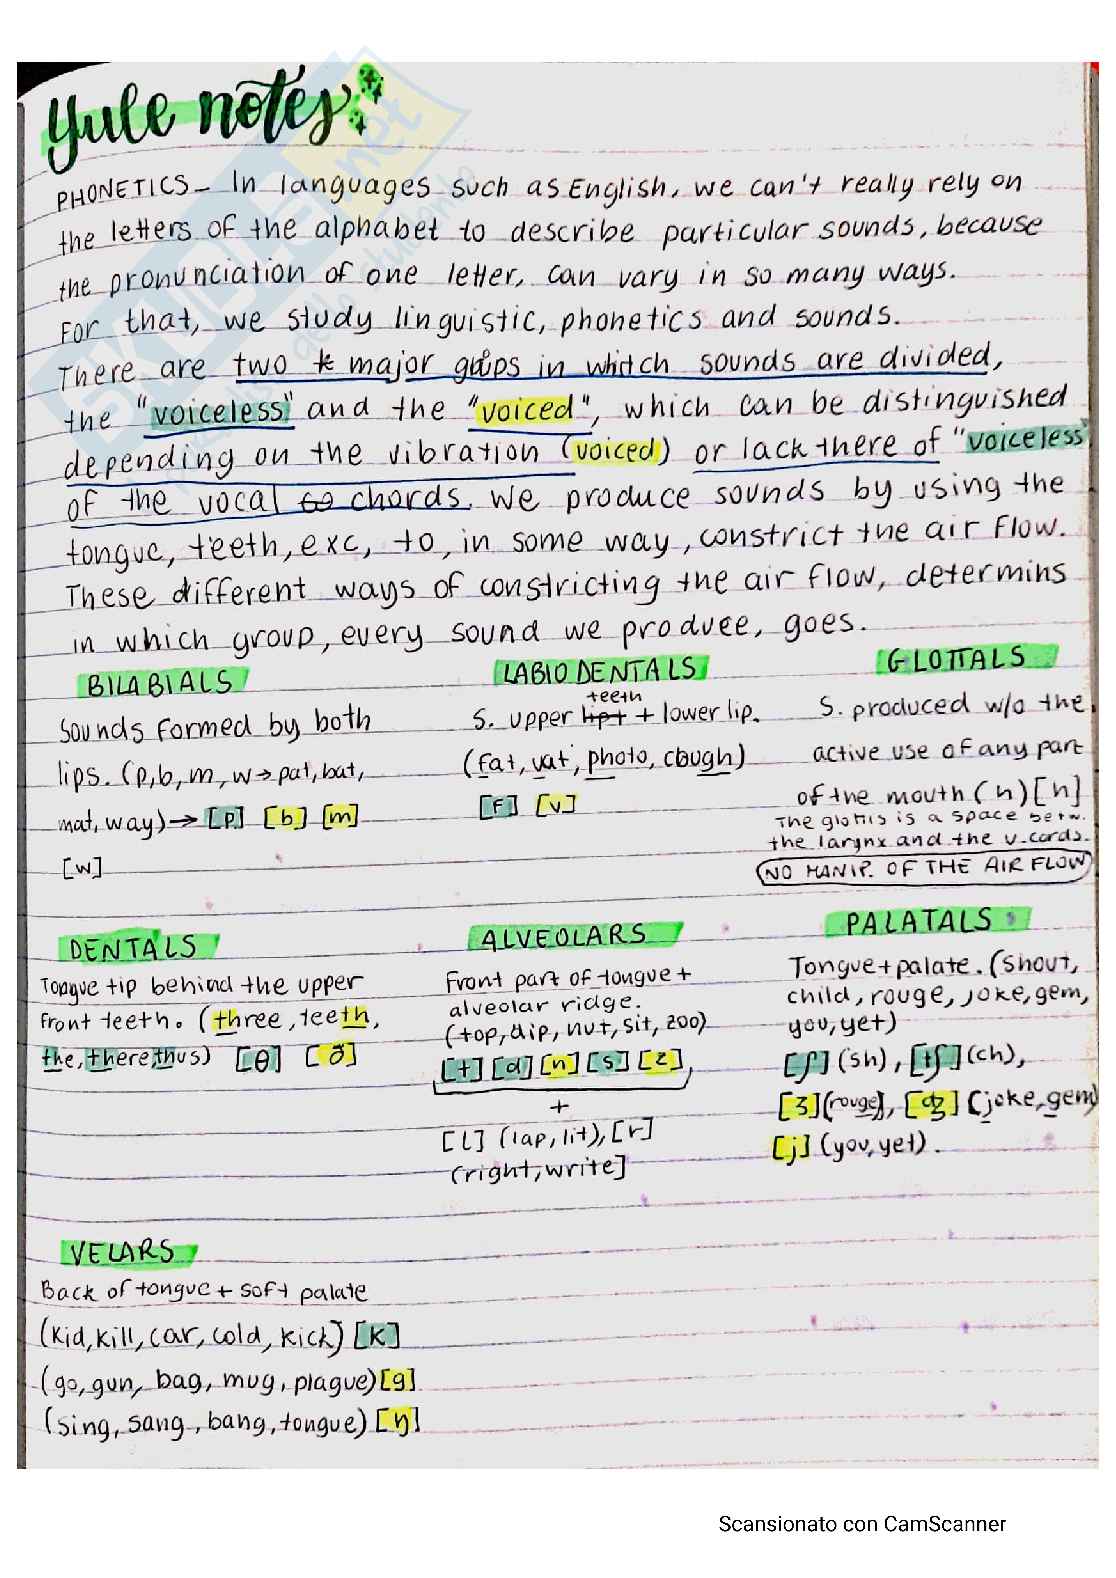 Yule notes
PHONETICS - In languages such as English, we can't really rely on
the letters of the alphabet to describe particular sounds, because
the pronunciation of one letter, can vary in so many ways.
For that, we study linguistic, phonetics and sounds.
There are two major groups in whitch sounds are divided,
the "voiceless" and the "voiced", which can be distinguished
depending on the vibration (voiced) or lack there of "voiceless"
of the vocal chords. We produce sounds by using the
tongue, teeth, exc, to, in some way, constrict the air flow.
These different ways of constricting the air flow, determins
in which group, every sound we produce, goes.
BILABIALS
Sounds formed by both
lips. (p, b, m, w → pat, bat,
mat, way) → [p] [b] [m]
[w]
LABIODENTALS
teeth
S. upper lipt + lower lip.
(fat, vat, photo, cough)
[f] [v]
GLOTTALS
S. produced w/o the
active use of any part
of the mouth (h) [h]
The glottis is a space betw.
the larynx and the v. cords.
NO MANIP. OF THE AIR FLOW
DENTALS
Tongue tip behind the upper
front teeth. (three, teeth,
the, there, thus) [θ] [ð]
ALVEOLARS
Front part of tongue +
alveolar ridge.
(top, dip, nut, sit, zoo)
[t] [d] [n] [s] [z]
+
[l] (lap, lit), [r]
(right, write]
PALATALS
Tongue + palate. (shout,
child, rouge, joke, gem,
you, yet)
[ʃ] (sh), [tʃ] (ch),
[ʒ] (rouge), [dʒ] (joke, gem)
[j] (you, yet).
VELARS
Back of tongue + soft palate
(kid, kill, car, cold, kick) [k]
(go, gun, bag, mug, plague) [g]
(sing, sang, bang, tongue) [ŋ]
Scansionato con CamScanner